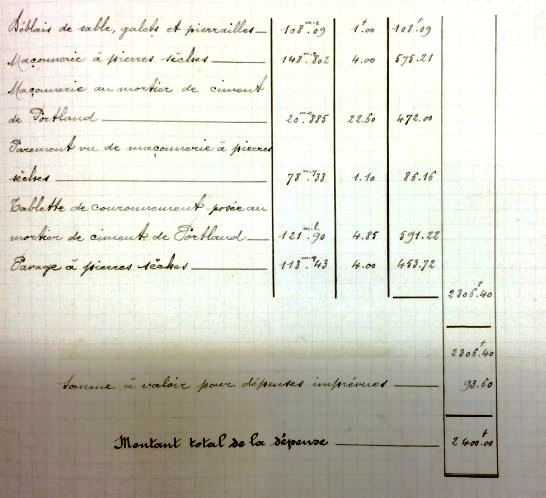 Déblais de sable, galets et pierrailles 108 m.c 09 1 f 00 108 f 09
Maçonnerie à pierres sèches 148 m.c 802 4.00 595.21
Maçonnerie au mortier de ciment
de Portland 20 m.c 885 22.60 472.00
Parement vu de maçonnerie à pierres
sèches 78 m.q 33 1.10 86.16
Tablette de couronnement posée au
mortier de ciment de Portland 121 m.l 90 4.85 591.22
Pavage à pierres sèches 113 m.q 43 4.00 453.72
2306 f 40
2306 f 40
Somme à valoir pour dépenses imprévues 93.60
Montant total de la dépense 2400 f 00